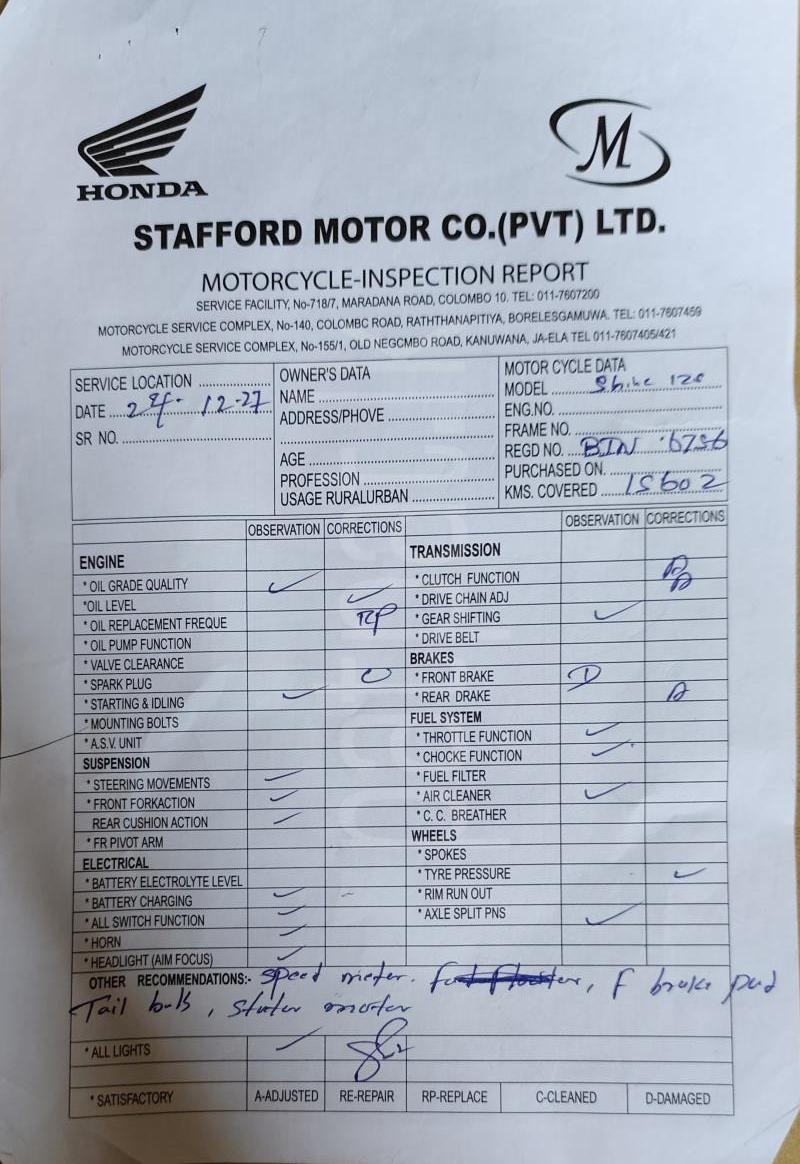 HONDA
M
STAFFORD MOTOR CO.(PVT) LTD.
MOTORCYCLE-INSPECTION REPORT
SERVICE FACILITY, No-718/7, MARADANA ROAD, COLOMBO 10. TEL: 011-7607200
MOTORCYCLE SERVICE COMPLEX, No-140, COLOMBC ROAD, RATHTHANAPITIYA, BORELESGAMUWA. TEL: 011-7607459
MOTORCYCLE SERVICE COMPLEX, No-155/1, OLD NEGCMBO ROAD, KANUWANA, JA-ELA TEL 011-7607405/421
SERVICE LOCATION
DATE 12-27
SR NO.
OWNER'S DATA
NAME
ADDRESS/PHOVE
AGE
PROFESSION
USAGE RURALURBAN
MOTOR CYCLE DATA
MODEL Shine 125
ENG.NO.
FRAME NO.
REGD NO.
PURCHASED ON.
KMS. COVERED 15602
OBSERVATION CORRECTIONS
ENGINE
* OIL GRADE QUALITY ✓
*OIL LEVEL ✓
* OIL REPLACEMENT FREQUE RP
* OIL PUMP FUNCTION
* VALVE CLEARANCE
* SPARK PLUG C
* STARTING & IDLING ✓
* MOUNTING BOLTS
* A.S.V. UNIT
SUSPENSION
* STEERING MOVEMENTS ✓
* FRONT FORKACTION ✓
REAR CUSHION ACTION ✓
* FR PIVOT ARM
ELECTRICAL
* BATTERY ELECTROLYTE LEVEL
* BATTERY CHARGING ✓
* ALL SWITCH FUNCTION ✓
* HORN ✓
* HEADLIGHT (AIM FOCUS) ✓
OBSERVATION CORRECTIONS
TRANSMISSION
* CLUTCH FUNCTION A
* DRIVE CHAIN ADJ A
* GEAR SHIFTING ✓
* DRIVE BELT
BRAKES
* FRONT BRAKE D
* REAR DRAKE A
FUEL SYSTEM
* THROTTLE FUNCTION ✓
* CHOCKE FUNCTION ✓
* FUEL FILTER
* AIR CLEANER ✓
* C. C. BREATHER
WHEELS
* SPOKES
* TYRE PRESSURE ✓
* RIM RUN OUT
* AXLE SPLIT PNS ✓
OTHER RECOMMENDATIONS:- Speed meter. , F brake pad
Tail bulb , starter motor
* ALL LIGHTS ✓
* SATISFACTORY A-ADJUSTED RE-REPAIR RP-REPLACE C-CLEANED D-DAMAGED